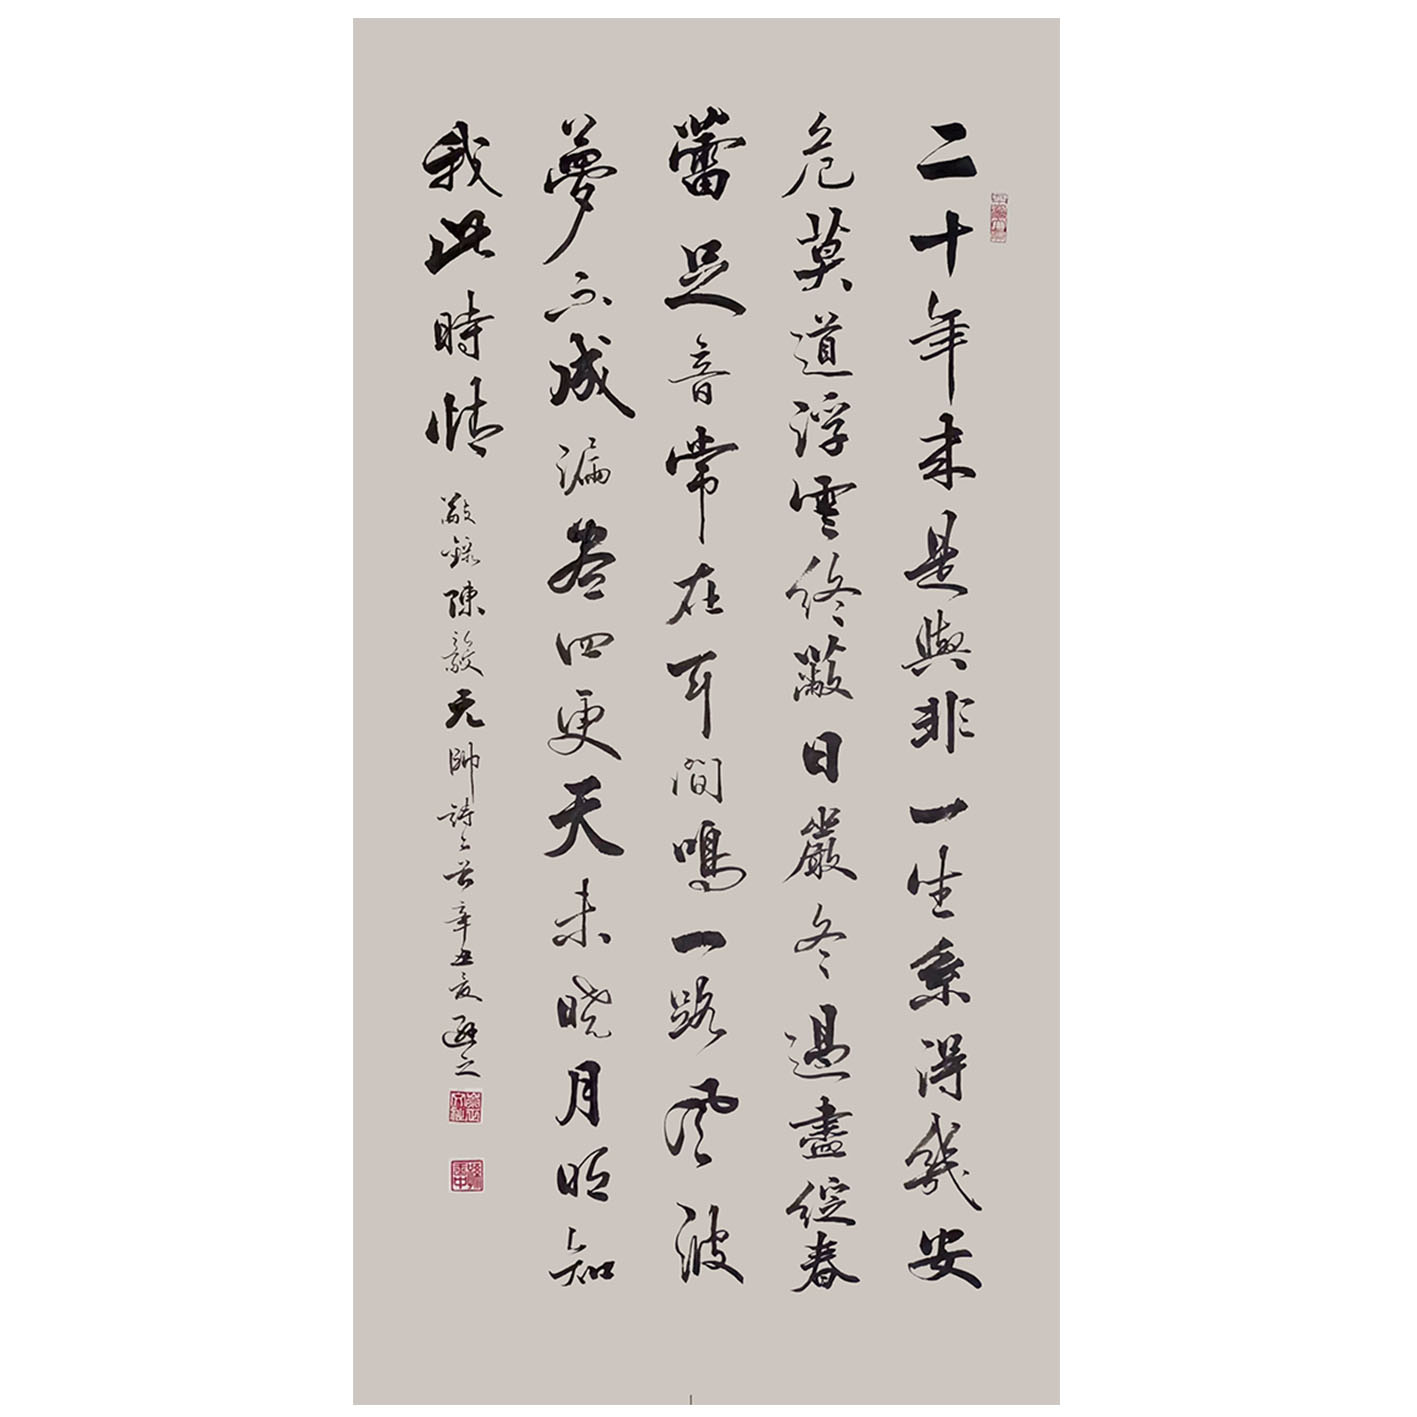 二十年来是與非一生系得幾安
危莫道浮雲终蔽日嚴冬過盡绽春
蕾足音常在耳間鳴一路風波
夢不成漏尽四更天未晓月明知
我此時情
敬録陳毅元帥詩二首辛丑夏遜之